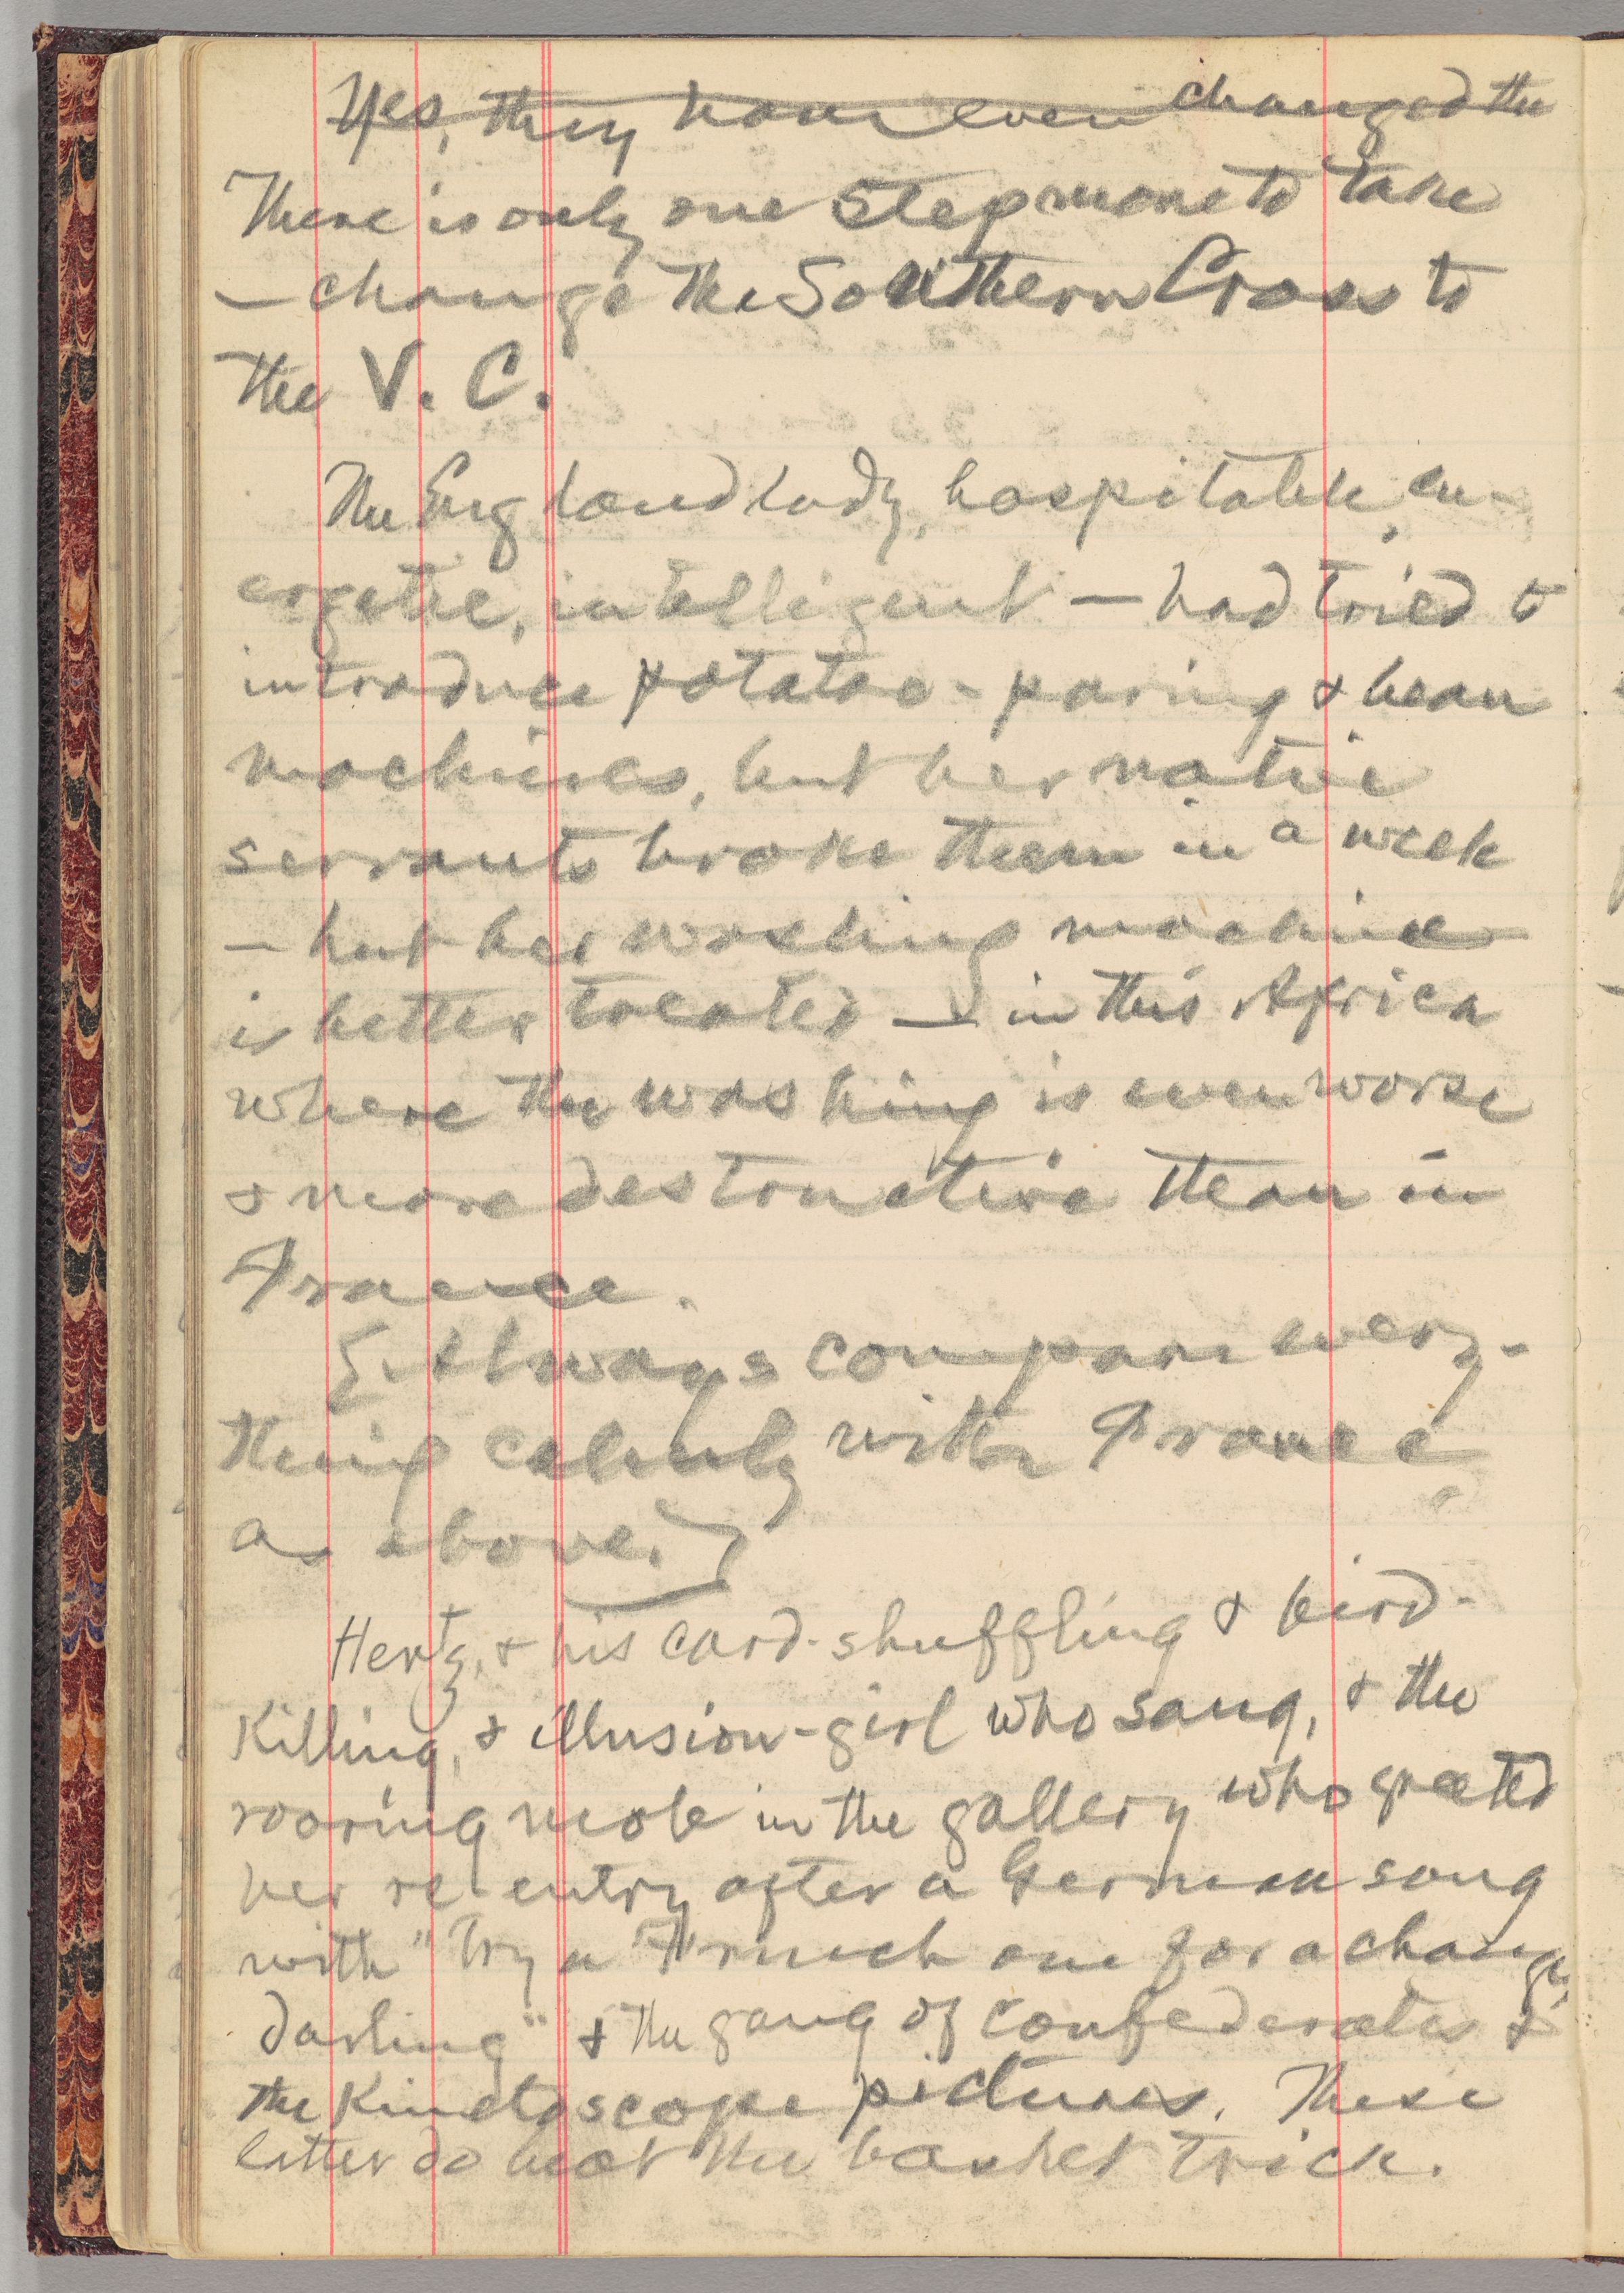 Yes, they have even changed the
There is only one step more to take
— change the Southern Cross to
the V. C.
The Eng landlady, hospitable, en-
ergetic, intelligent — had tried to
introduce potatoe-paring & bean
machines, but her native
servants broke them in a week
— but her washing machine
is better treated — in this Africa
where the washing is even worse
& more destructive than in
France.
[Always compare every-
thing calmly with France
as above.]
Hertz, & his card-shuffling & bird-
killing, & illusion-girl who sang, & the
roaring mob in the gallery who greeted
her re-entry after a German song
with "Try a French one for a change,
darling" & the gang of confederates &
the Kinetoscope pictures. These
latter do beat the basket trick.